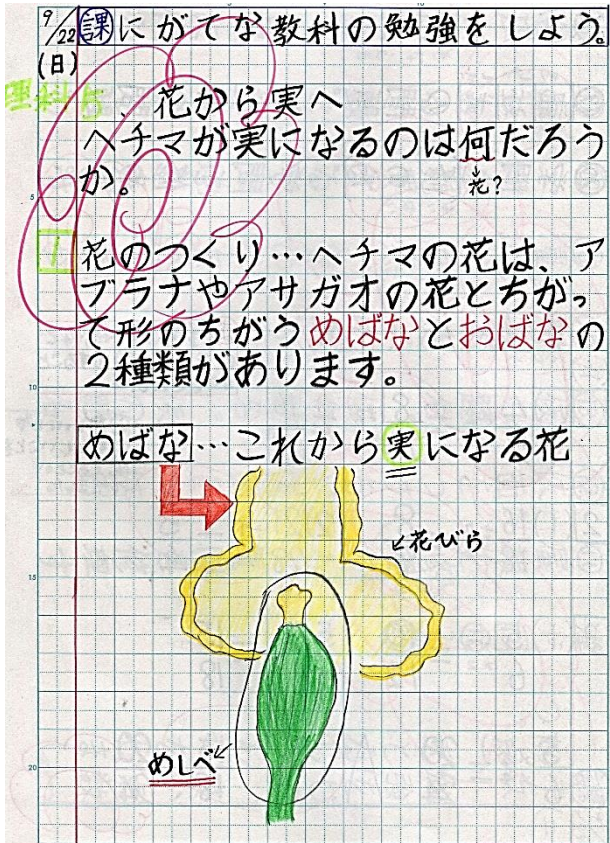 9/22 課 にがてな教科の勉強をしよう。
(日)
理科 5、花から実へ
ヘチマが実になるのは何だろう
か。
↓
花?
1 花のつくり…ヘチマの花は、ア
ブラナやアサガオの花とちがっ
て形のちがうめばなとおばなの
2種類があります。
めばな…これから実になる花
花びら
めしべ
5
10
15
20